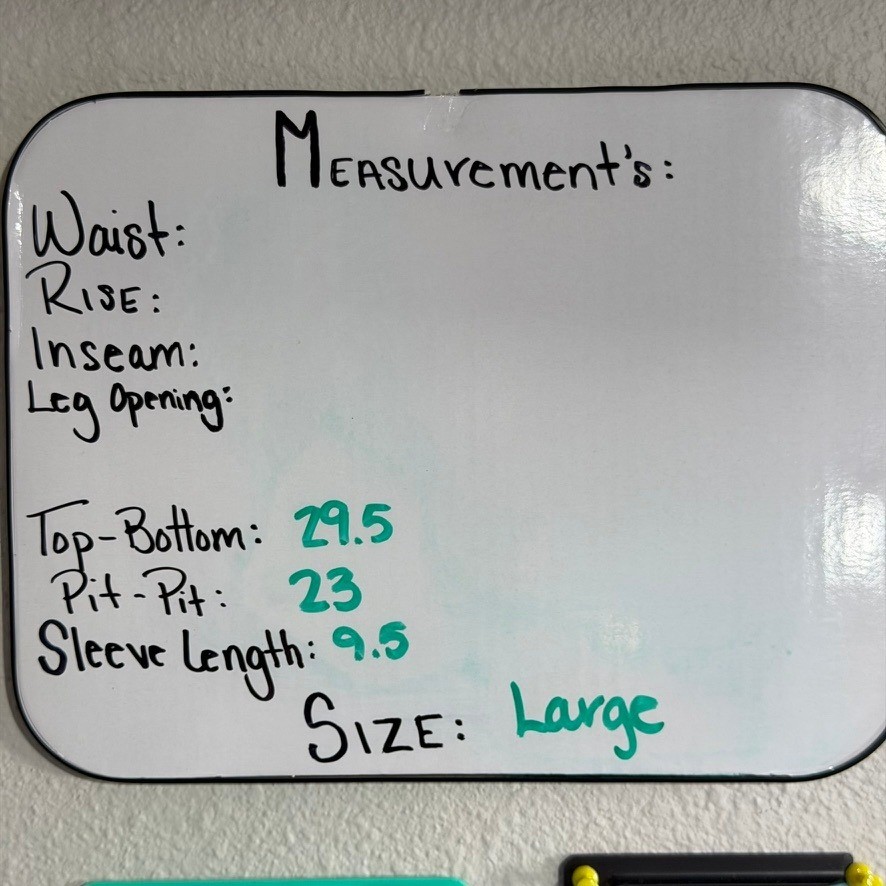 MEASurement's:
Waist:
RISE:
Inseam:
Leg Opening:
Top-Bottom: 29.5
Pit-Pit: 23
Sleeve Length: 9.5
SIZE: Large